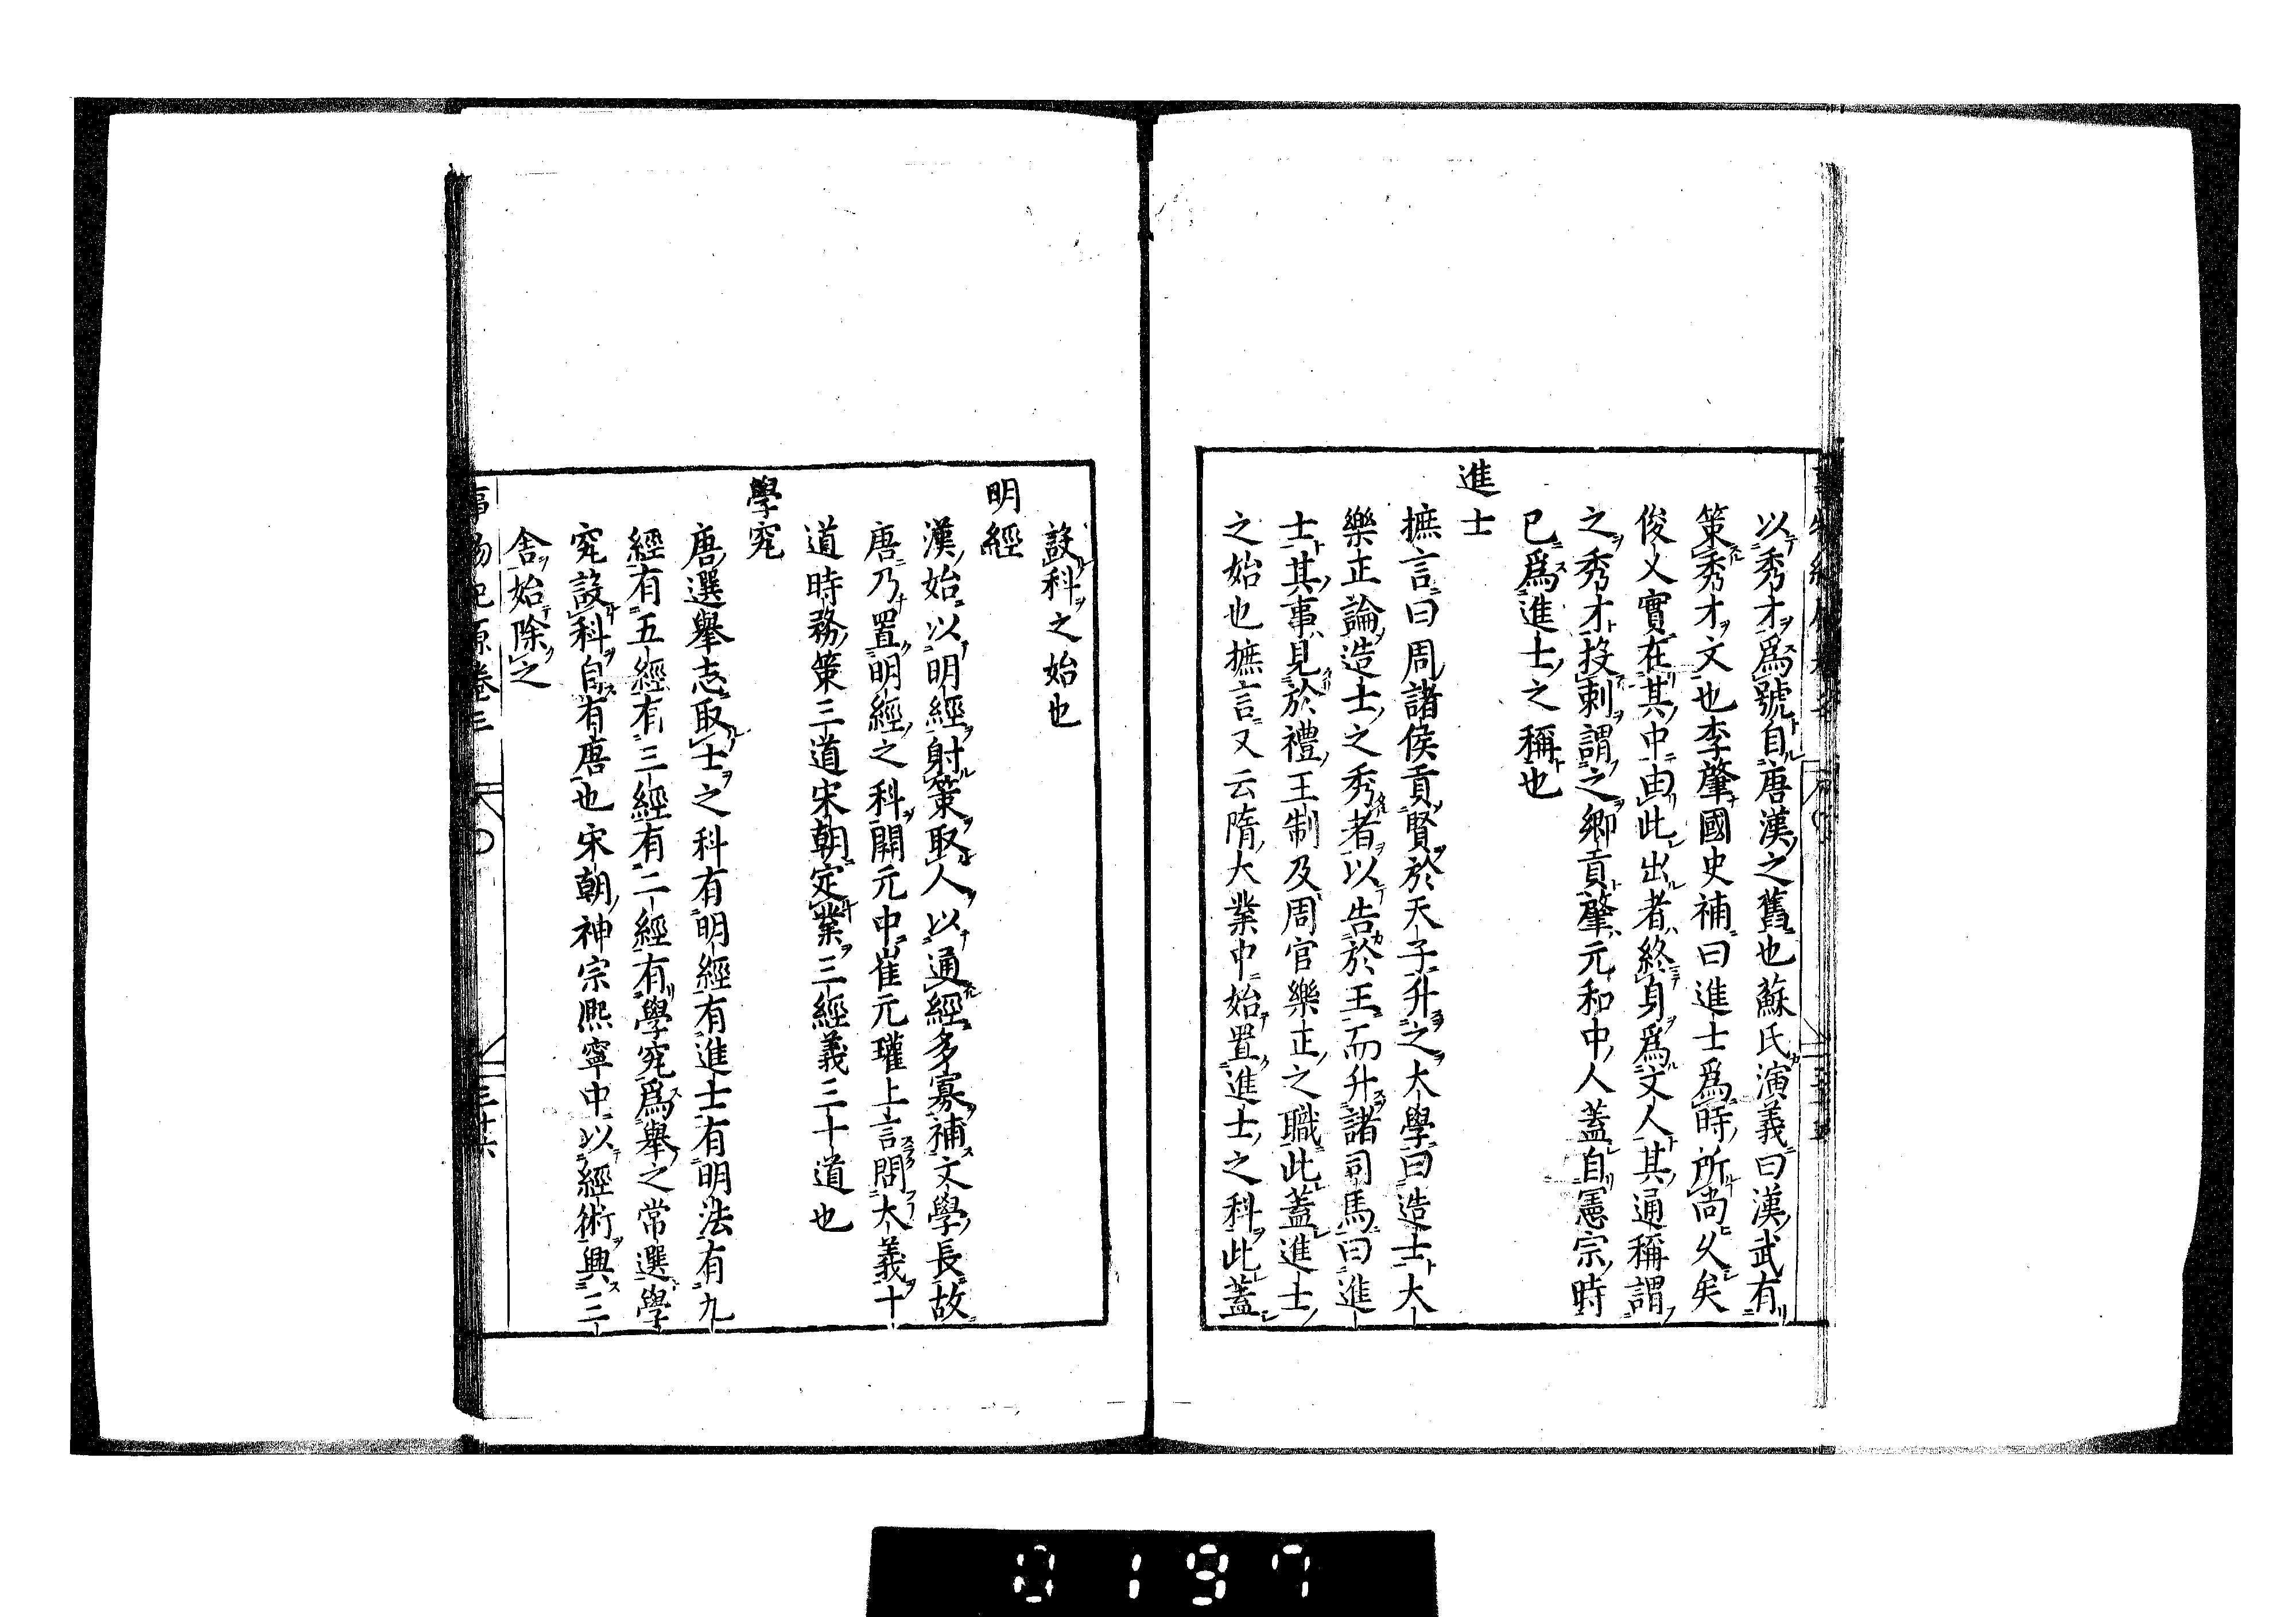 以秀才爲號自唐漢之舊也蘇氏演義曰漢武有
策秀才文也李肇國史補曰進士爲時所尚久矣
俊乂實在其中由此出者終身爲文人其通稱謂
之秀才投刺謂之鄉貢肇元和中人蓋自憲宗時
已爲進士之稱也
進士
摭言曰周諸侯貢賢於天子升之大學曰造士大
樂正論造士之秀者以告於王而升諸司馬曰進
士其事見於禮王制及周官樂正之職此蓋進士
之始也摭言又云隋大業中始置進士之科此蓋
設科之始也
明經
漢始以明經射策取人以通經多寡補文學長故
唐乃置明經之科開元中崔元瓘上言問大義十
道時務策三道宋朝定業三經義三十道也
學究
唐選舉志取士之科有明經有進士有明法有九
經有五經有三經有二經有學究爲舉之常選學
究設科自有唐也宋朝神宗熈寧中以經術興三
舍始除之
事物紀原卷三
三十六
0197